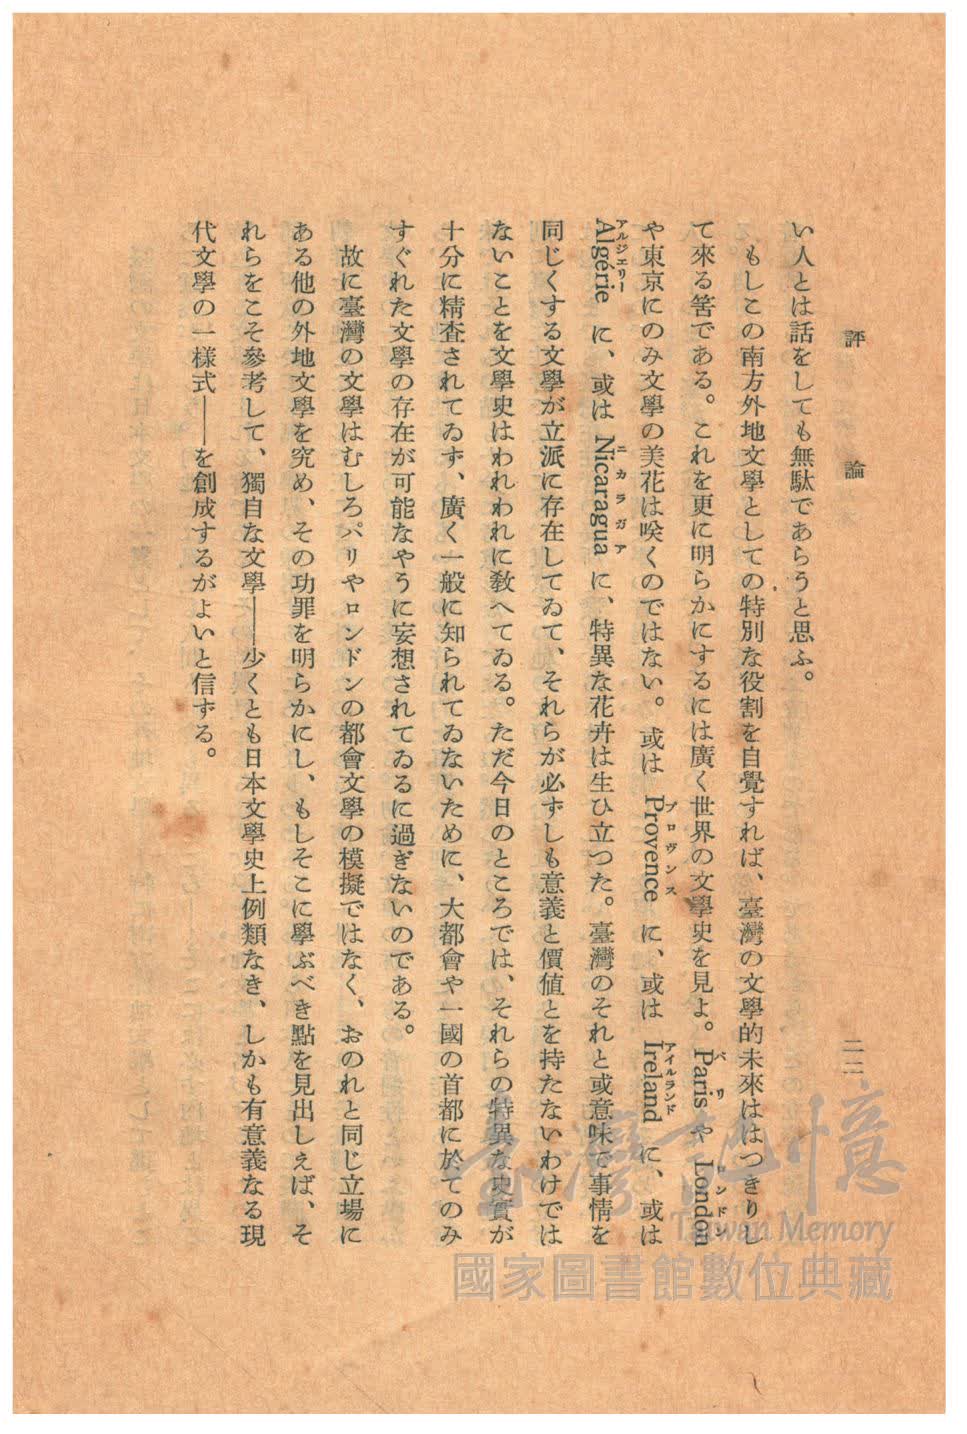 評論
二二
い人とは話をしても無駄であらうと思ふ。
もしこの南方外地文學としての特別な役割を自覺すれば、臺灣の文學的未來ははつきりし
て來る筈である。これを更に明らかにするには廣く世界の文學史を見よ。ParisパリやLondonロンドン
や東京にのみ文學の美花は咲くのではない。或はProvenceプロヴンスに、或はIrelandアイルランドに、或は
Algérieアルジェリーに、或はNicaraguaニカラガアに、特異な花卉は生ひ立つた。臺灣のそれと或意味で事情を
同じくする文學が立派に存在してゐて、それらが必ずしも意義と價値とを持たないわけでは
ないことを文學史はわれわれに敎へてゐる。ただ今日のところでは、それらの特異な史實が
十分に精査されてゐず、廣く一般に知られてゐないために、大都會や一國の首都に於てのみ
すぐれた文學の存在が可能なやうに妄想されてゐるに過ぎないのである。
故に臺灣の文學はむしろパリやロンドンの都會文學の模擬ではなく、おのれと同じ立場に
ある他の外地文學を究め、その功罪を明らかにし、もしそこに學ぶべき點を見出しえば、そ
れらをこそ參考して、獨自な文學――少くとも日本文學史上例類なき、しかも有意義なる現
代文學の一樣式――を創成するがよいと信ずる。
臺灣記憶
Taiwan Memory
國家圖書館數位典藏